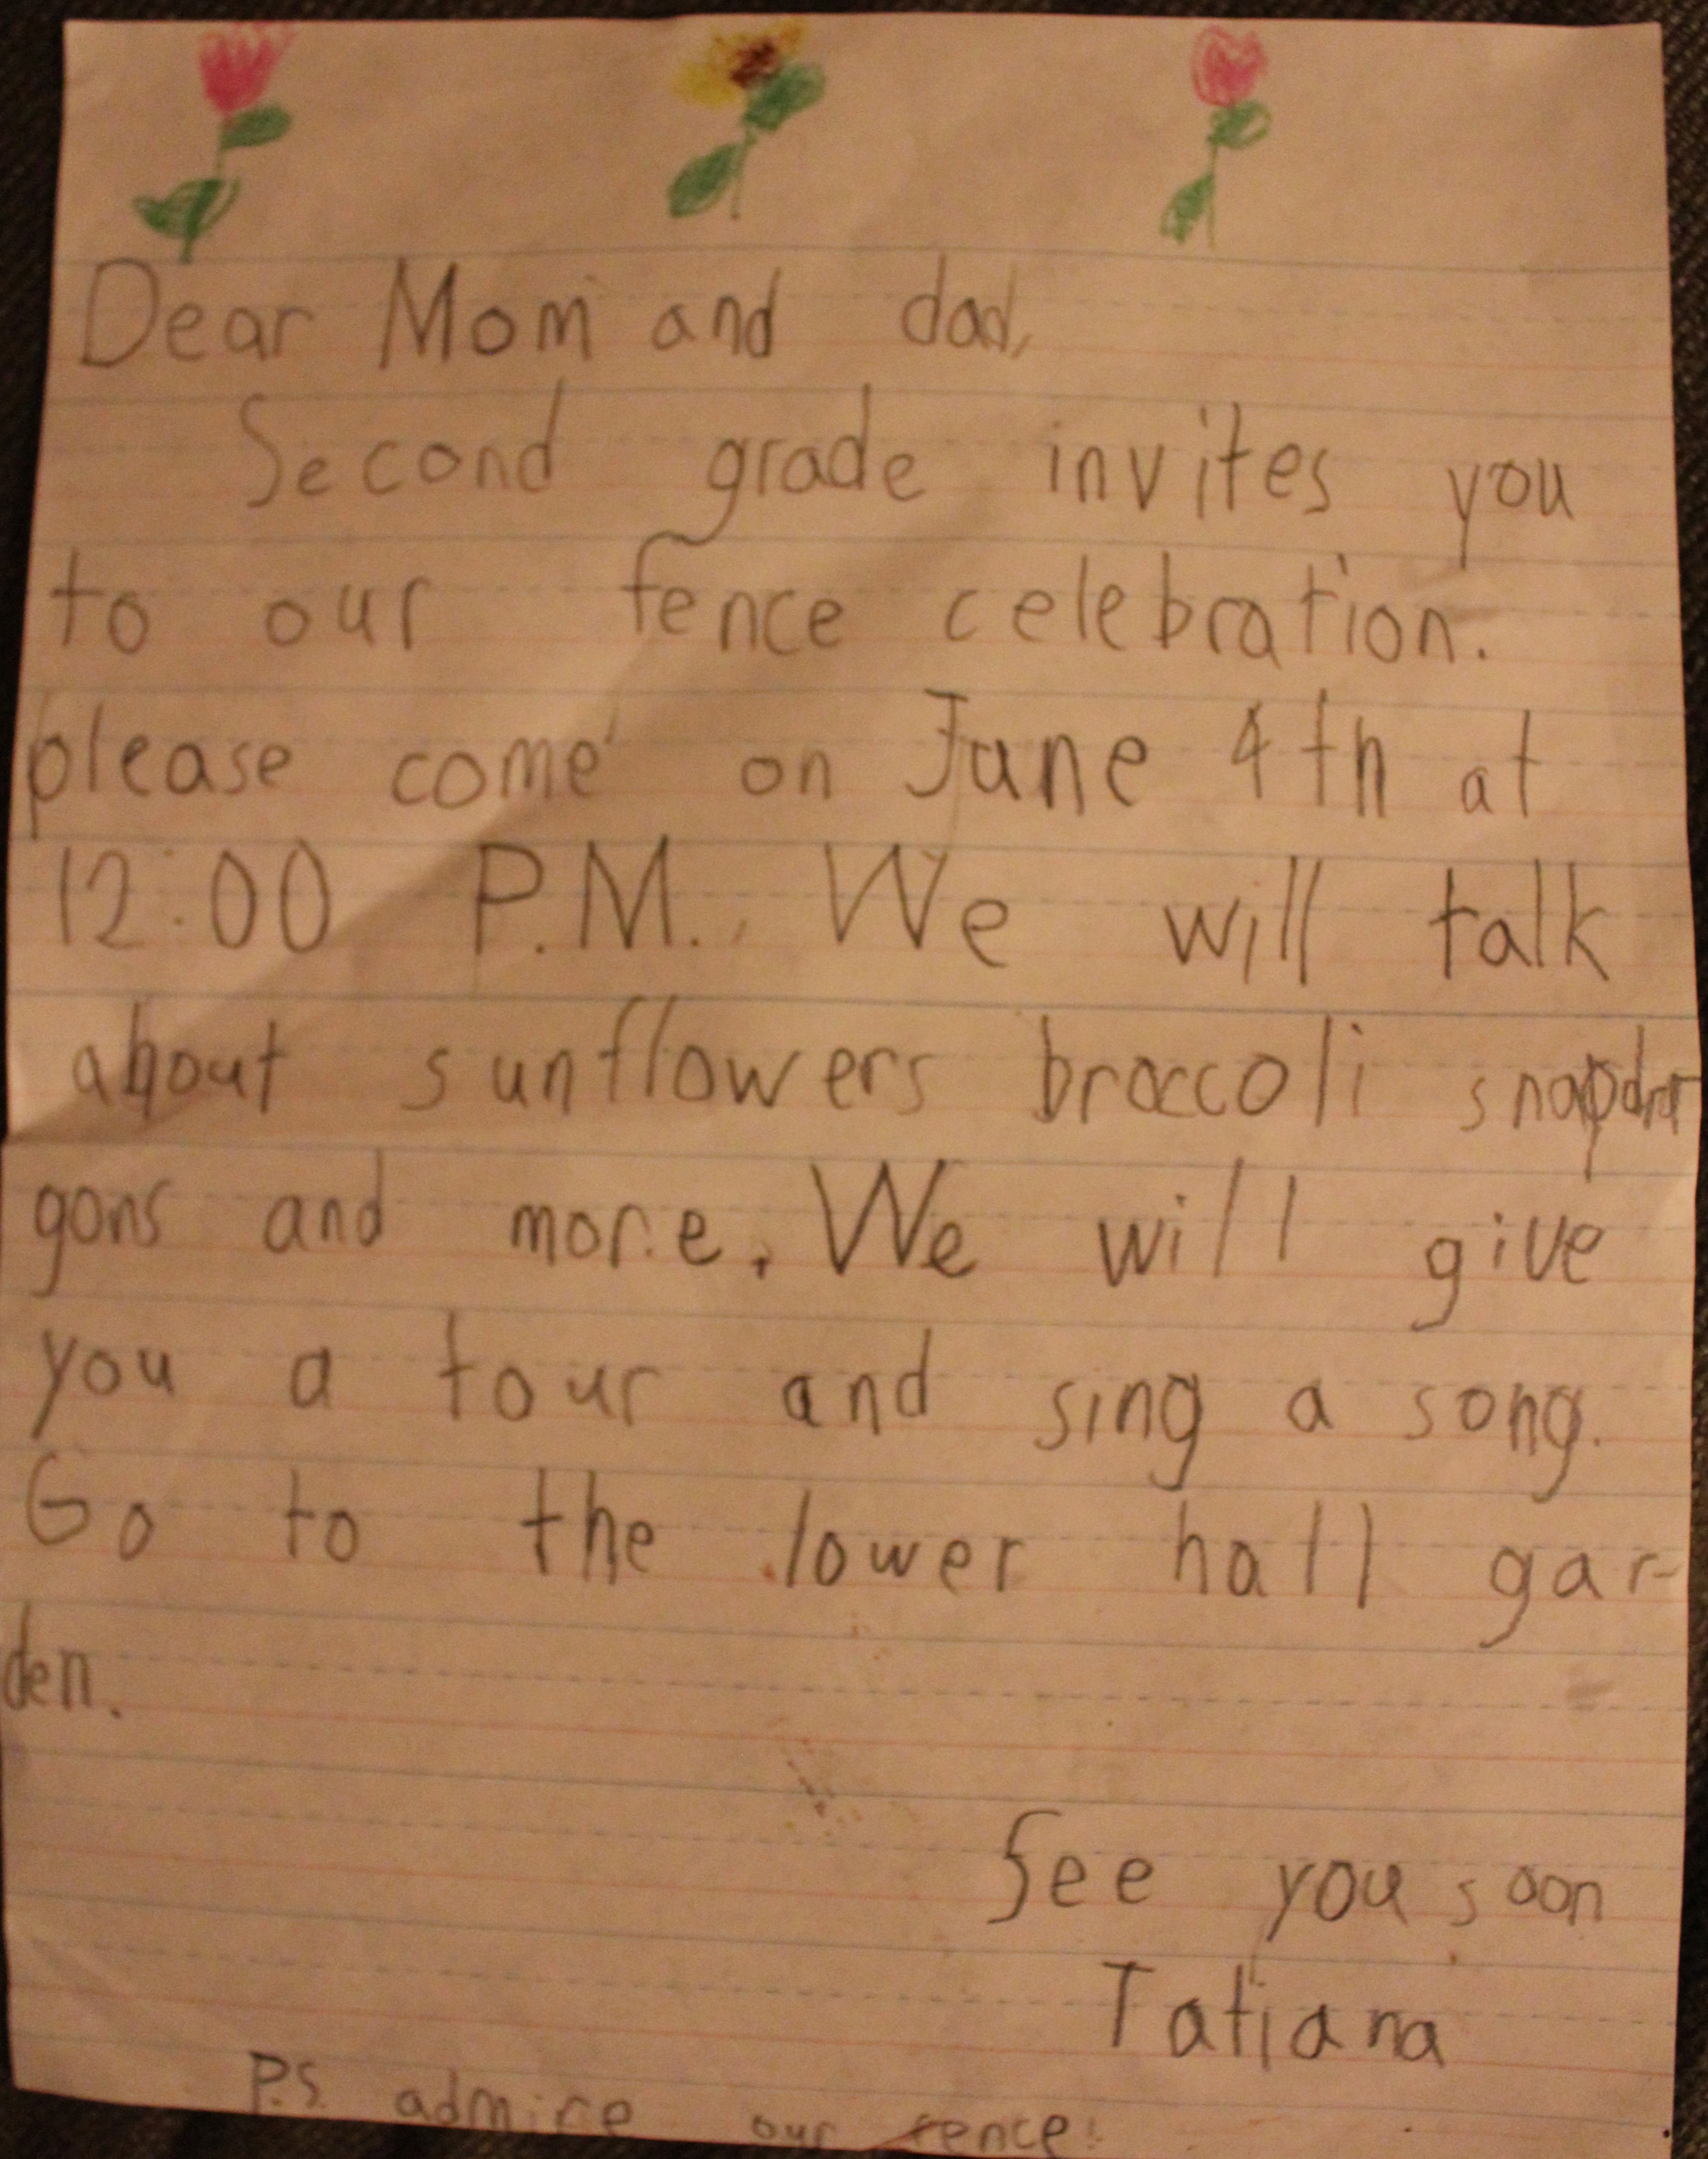 Dear Mom and dad,
Second grade invites you
to our fence celebration.
please come on June 4th at
12:00 P.M. We will talk
about sunflowers broccoli snapdra
gons and more. We will give
you a tour and sing a song.
Go to the lower hall gar-
den.
See you soon
Tatiana
P.S. admire our fence!